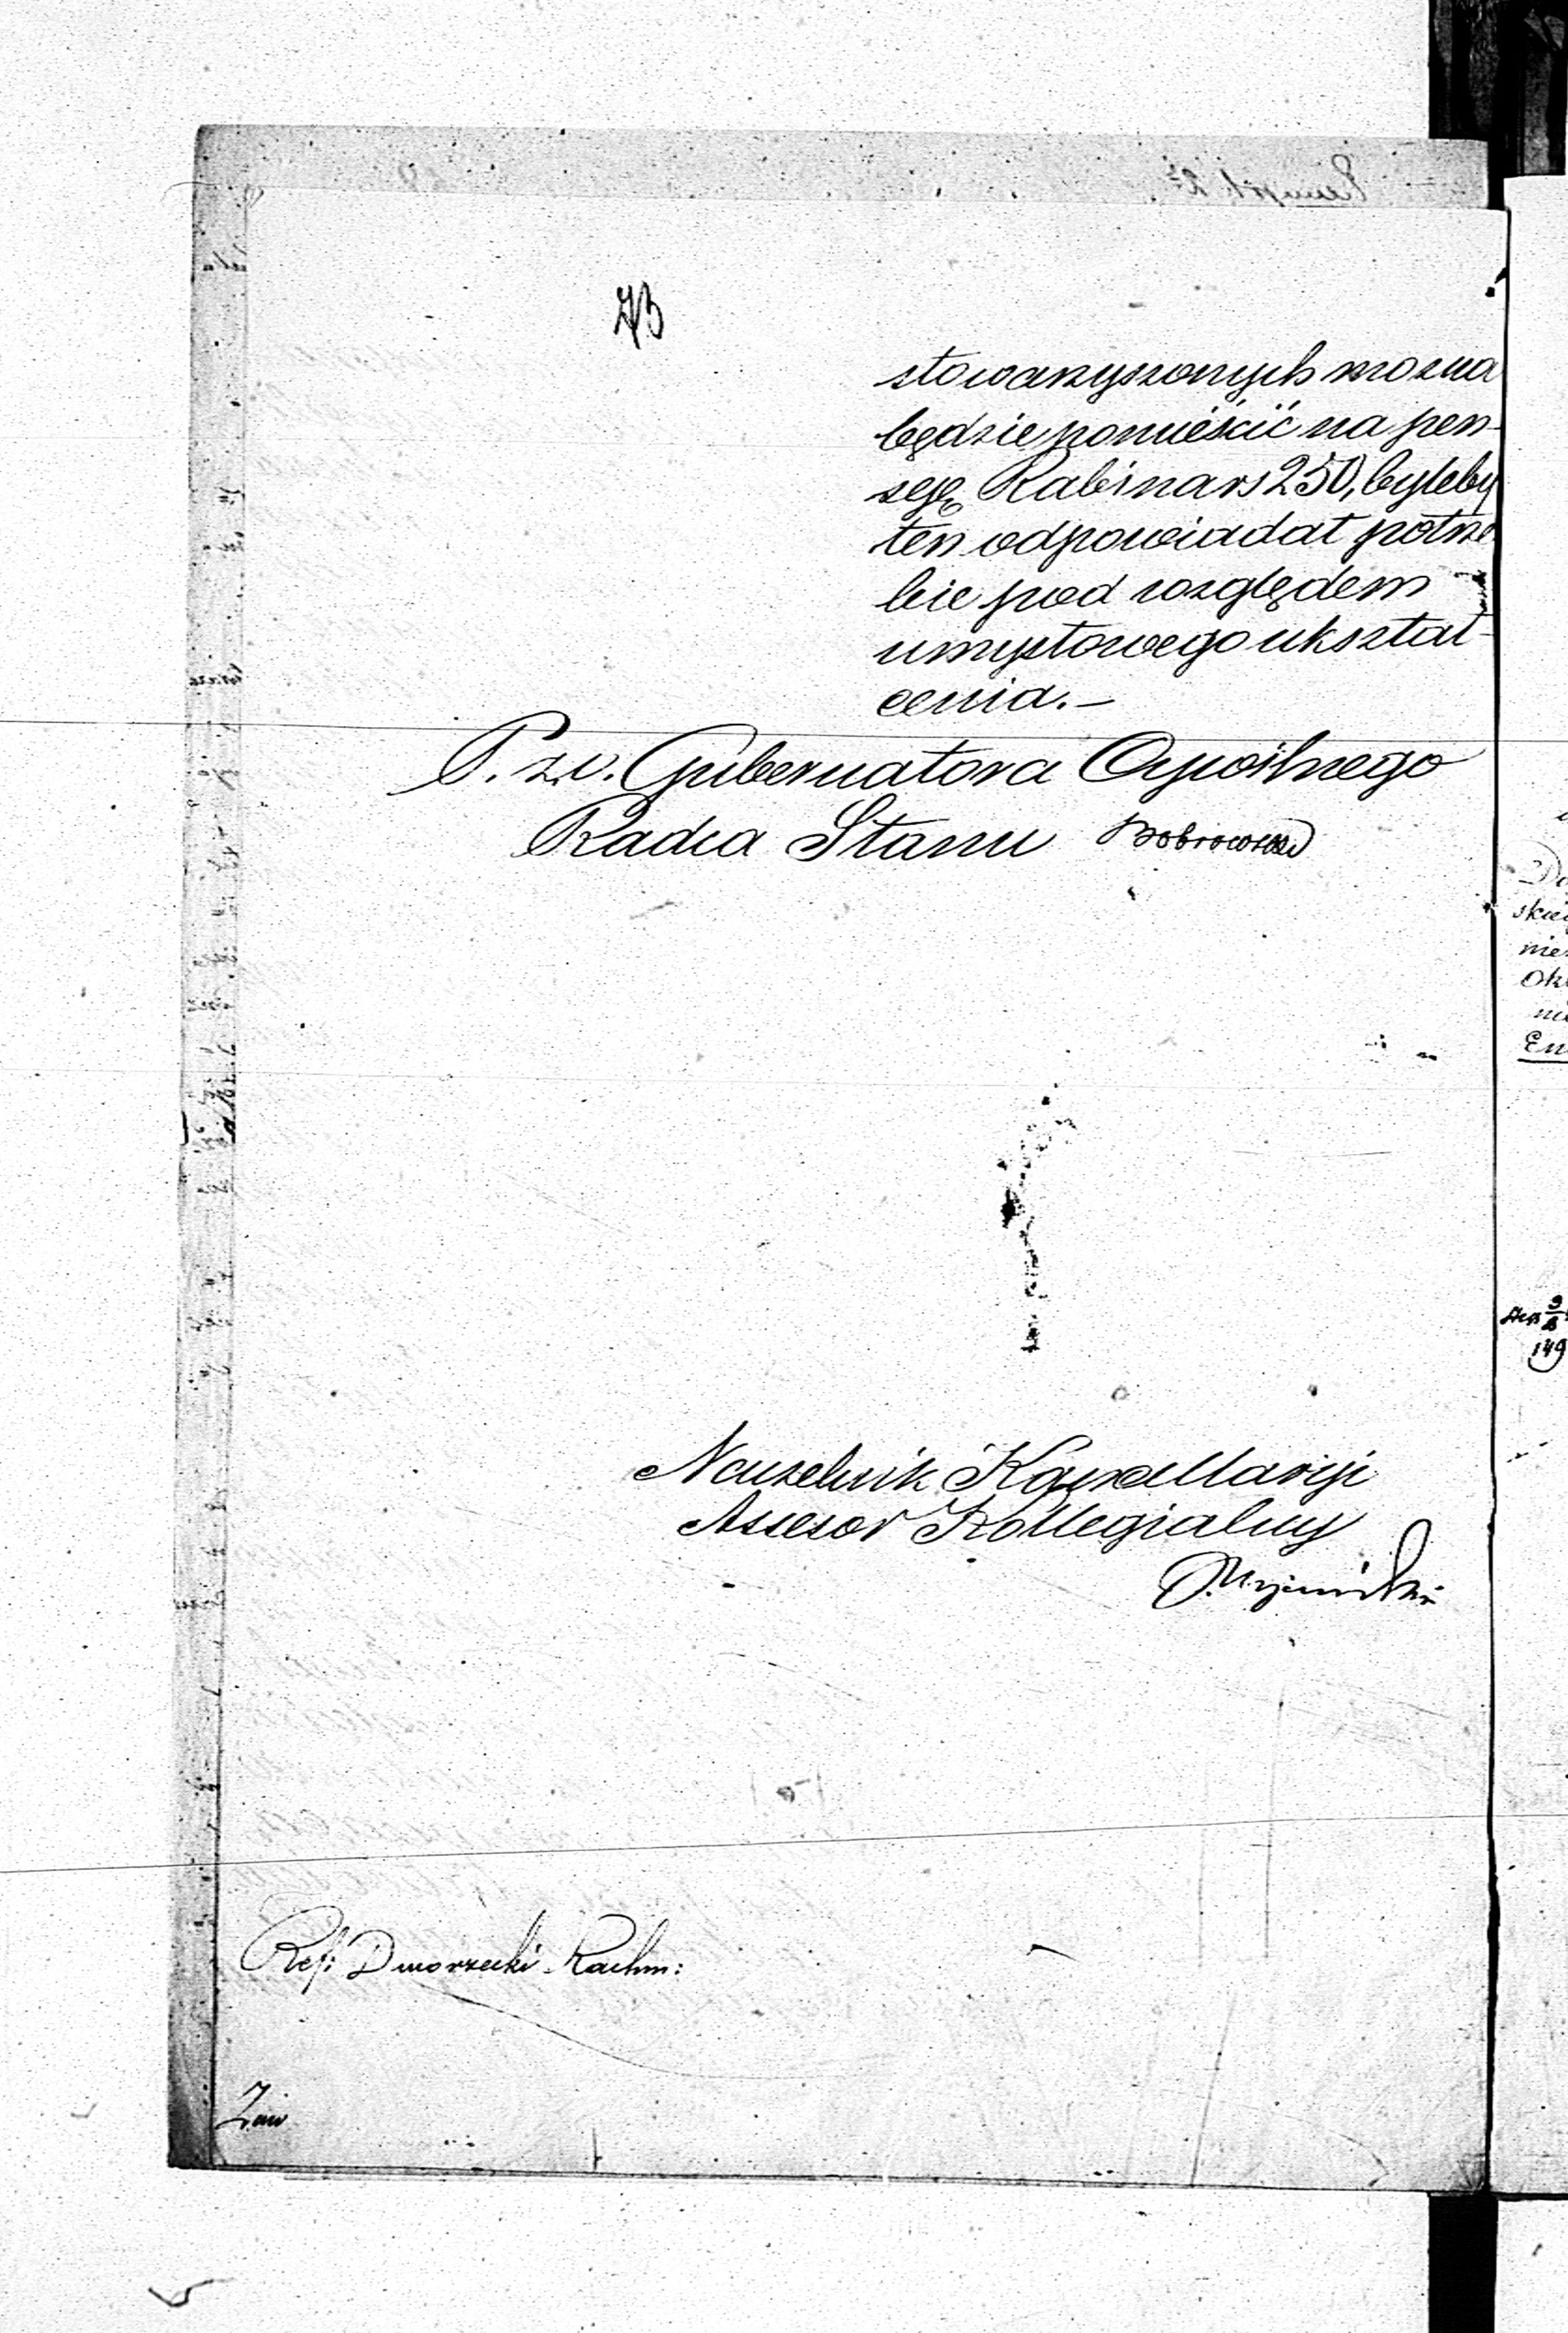 73
stowarzyszonych mozna
będzie pomieścić na pen-
seję Rabina rs 250, byleby
ten odpowiadał potrze
bie pod względem
umysłowego ukształ-
cenia.—
P. z. o. Gubernatora Cywilnego
Radca Stanu Dobrowolski
Naczelnik Kancellaryi
Assesor Kollegialny
Ref: Dworzecki Rachm: